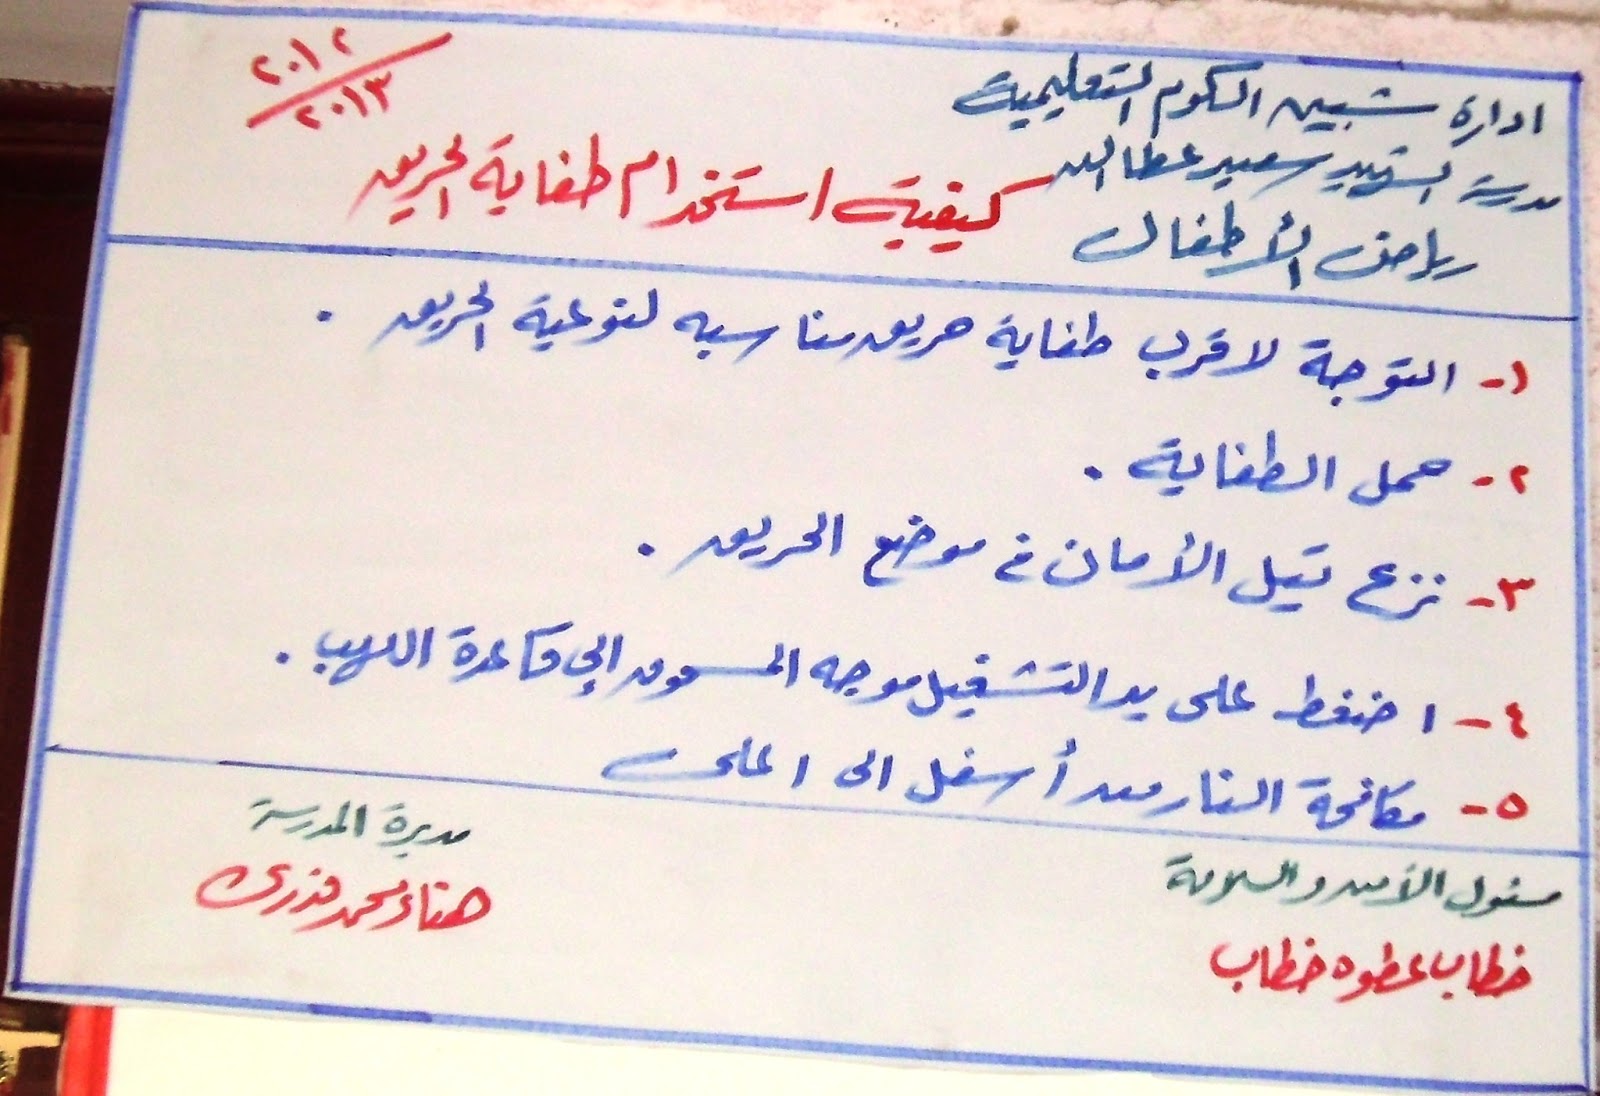 ادارة شبين الكوم التعليمية
٢٠١٢
٢٠١٣
مدرسة الشهيد سعيد عطا الله
رياض الأطفال
كيفية استخدام طفاية الحريق
١- التوجة لاقرب طفاية حريق مناسبه لنوعية الحريق .
٢- حمل الطفاية .
٣- نزع تيل الأمان فى موضع الحريق .
٤- اضغط على يد التشغيل موجه المسحوق الي قاعدة اللهب .
٥- مكافحة النار من أسفل الى اعلى
مسئول الأمن والسلامة
خطاب عطوه خطاب
مديرة المدرسة
هناء محمد قدرى